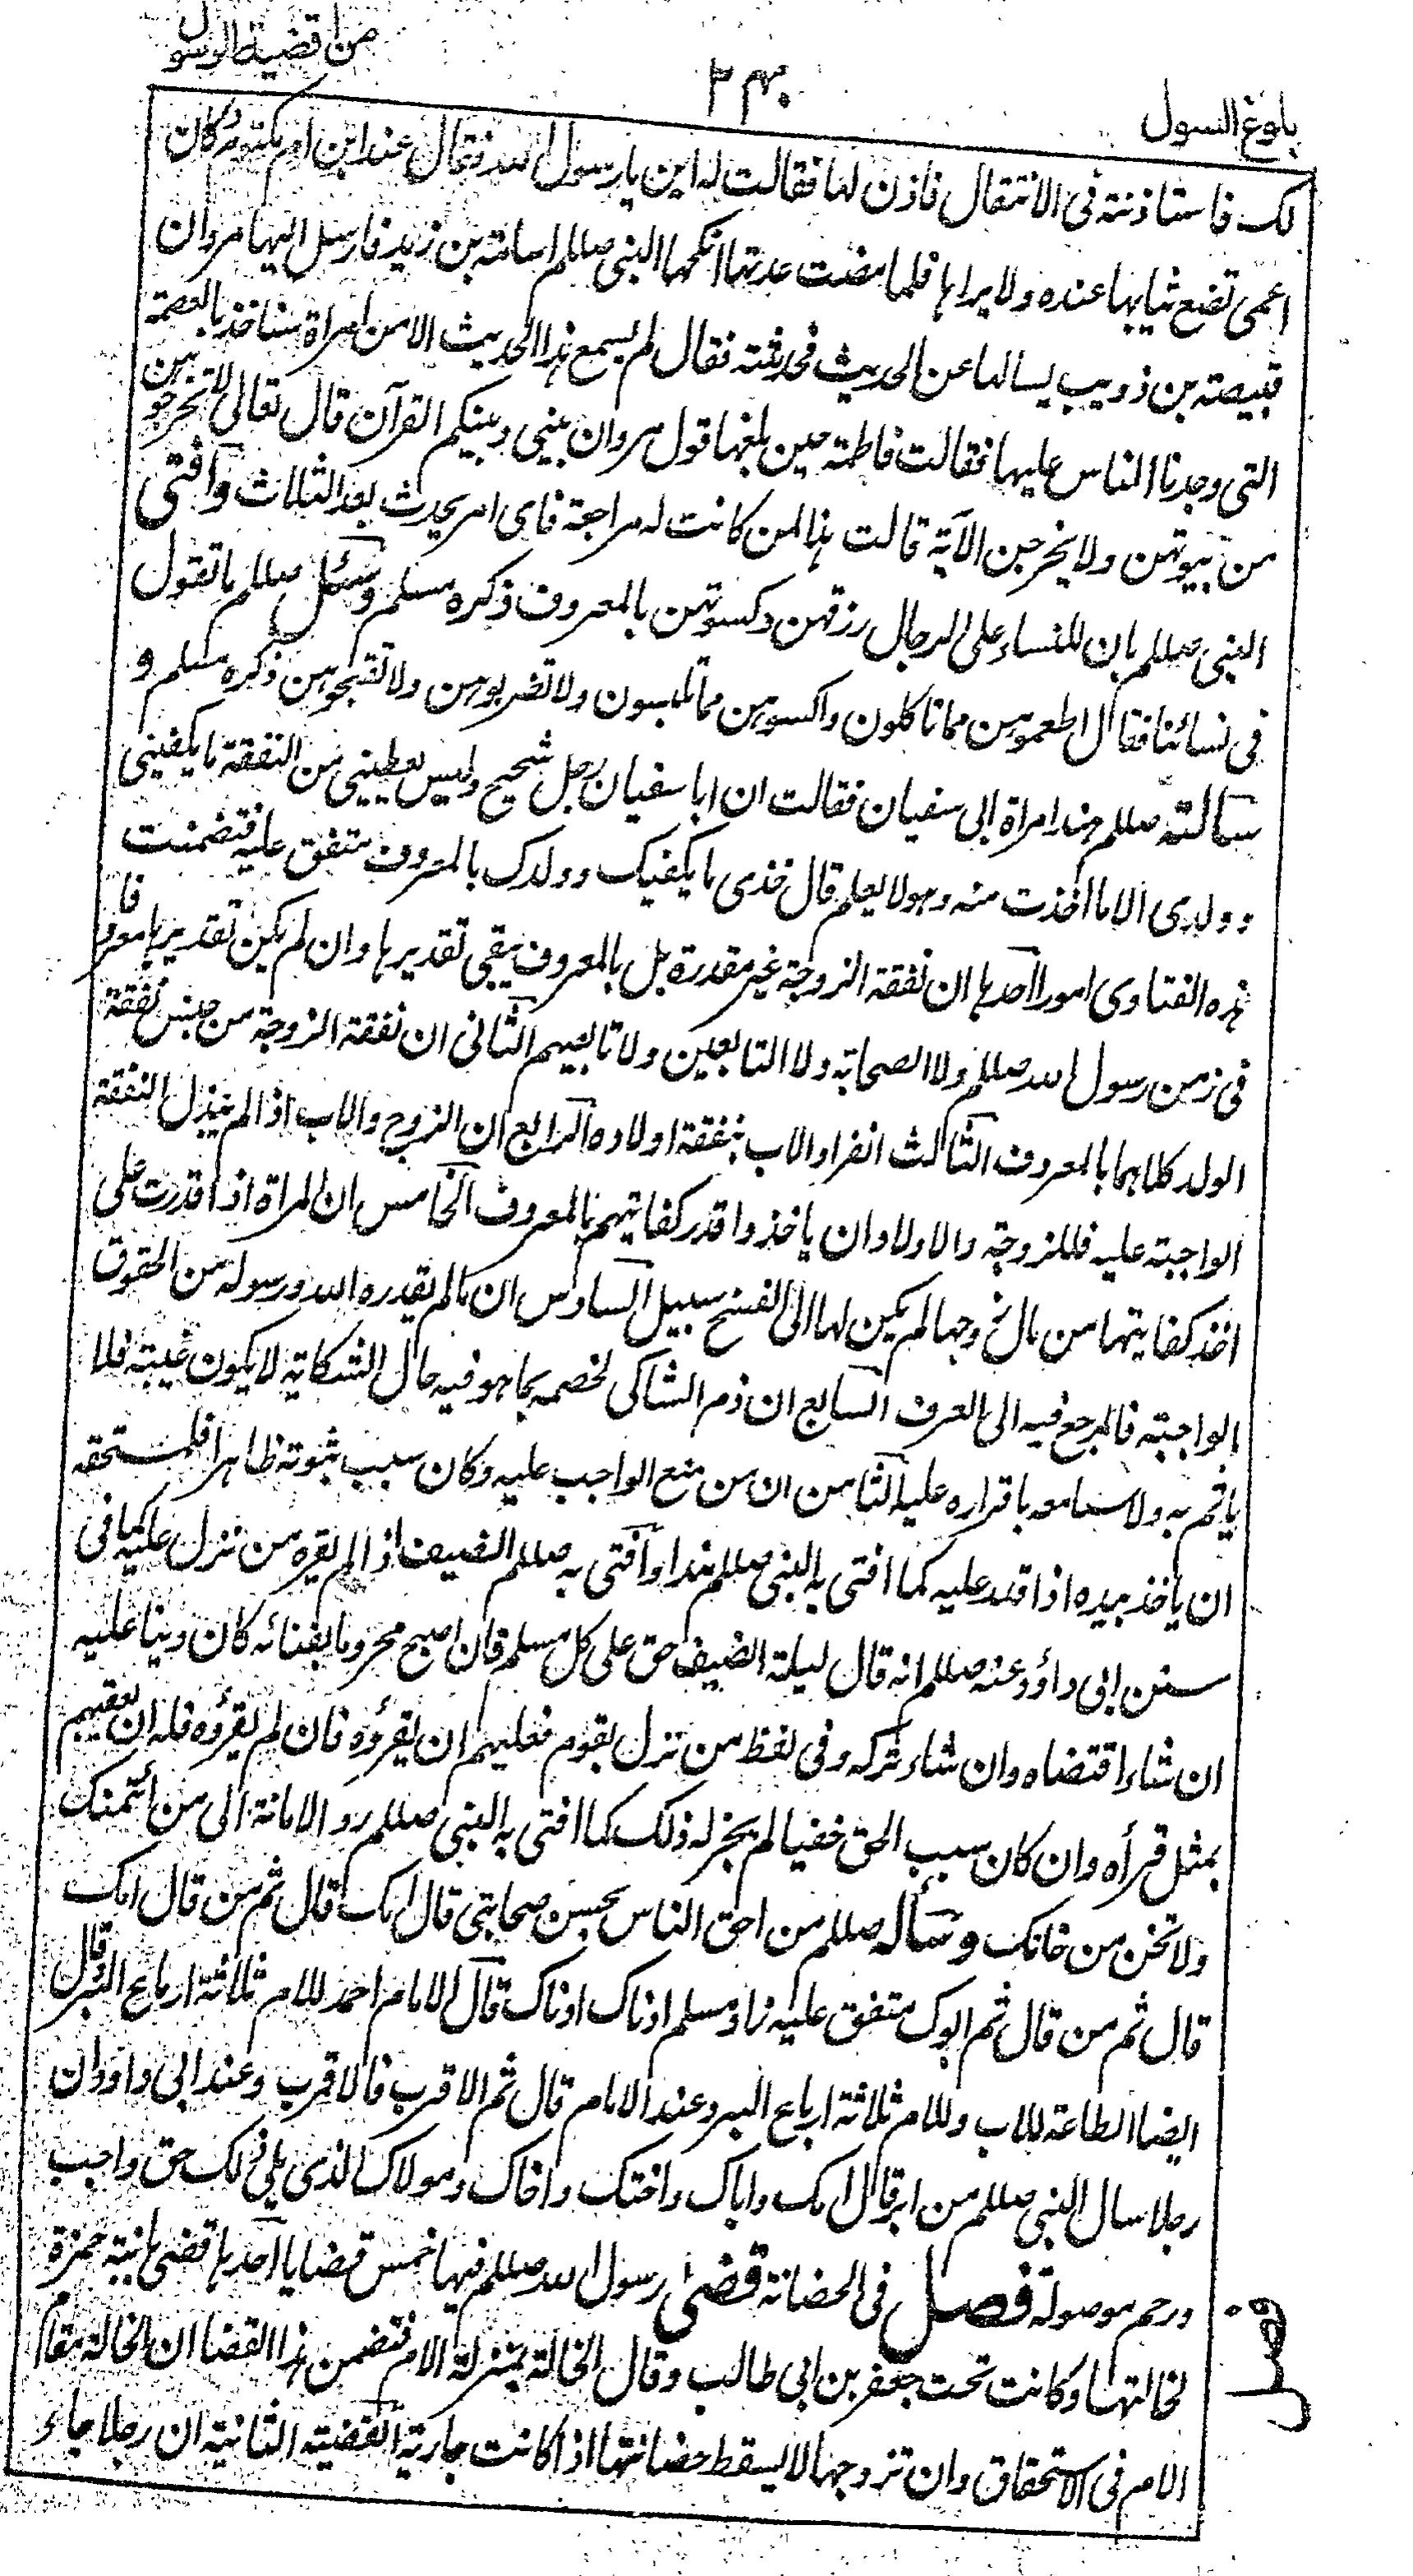 من اقضية الرسول
٢٤٣
بلوغ السول
لك فاستاذنته فى الانتقال فاذن لها فقالت له اين يا رسول الله فقال عند ابن ام مكتوم وكان
اعمى تضع ثيابها عنده ولا يراها فلما مضت عدتها انكحها النبى صللم اسامة بن زيد فارسل اليها مروان
قبيصة بن ذويب يسالها عن الحديث فحدثته فقال لم يسمع هذا الحديث الا من امراة سناخذ بالعصمة
التى وجدنا الناس عليها فقالت فاطمة حين بلغها قول مروان بينى وبينكم القرآن قال تعالى لا تخرجوهن
من بيوتهن ولا يخرجن الآية قالت هذا لمن كانت له مراجعة فاى امر يحدث بعد الثلاث وافتى
النبى صللم بان للنساء على الرجال رزقهن وكسوتهن بالمعروف ذكره مسلم وسئل صللم ما تقول
فى نسائنا فقال اطعموهن مما تاكلون واكسوهن مما تلبسون ولا تضربوهن ولا تقبحوهن ذكره مسلم و
سالته صللم هند امراة ابى سفيان فقالت ان ابا سفيان رجل شحيح وليس يعطينى من النفقة ما يكفينى
وولدى الا ما اخذت منه وهو لا يعلم قال خذى ما يكفيك وولدك بالمعروف متفق عليه فتضمنت
هذه الفتاوى امورا احدها ان نفقة الزوجة غير مقدرة بل بالمعروف ينفى تقديرها وان لم يكن تقديرها معروفا
فى زمن رسول الله صللم ولا الصحابة ولا التابعين ولا تابعيهم الثانى ان نفقة الزوجة من جنس نفقة
الولد كلاهما بالمعروف الثالث انفراد الاب بنفقة اولاده الرابع ان الزوج والاب اذا لم يبذل النفقة
الواجبة عليه فللزوجة والاولاد ان ياخذوا قدر كفايتهم بالمعروف الخامس ان المراة اذا قدرت على
اخذ كفايتها من مال زوجها لم يكن لها الى الفسخ سبيل السادس ان ما لم يقدره الله ورسوله من الحقوق
الواجبة فالمرجع فيه الى العرف السابع ان ذم الشاكى لخصمه بما هو فيه حال الشكاية لا يكون غيبة فلا
ياثم به ولا سامعه باقراره عليه الثامن ان من منع الواجب عليه وكان سبب ثبوته ظاهرا فلمستحقه
ان ياخذ بيده اذا قدر عليه كما افتى به النبى صللم هندا وافتى به صللم الضيف اذا لم يقره من نزل عليه كما فى
سنن ابى داؤد عنه صللم انه قال ليلة الضيف حق على كل مسلم فان اصبح محروما بفنائه كان دينا عليه
ان شاء اقتضاه وان شاء تركه وفى لفظ من نزل بقوم فعليهم ان يقرؤه فان لم يقرؤه فله ان يعقبهم
بمثل قرأه وان كان سبب الحق خفيا لم يجز له ذلك كما افتى به النبى صللم رد الامانة الى من ائتمنك
ولا تخن من خانك وسأله صللم من احق الناس بحسن صحابتى قال امك قال ثم من قال امك
قال ثم من قال ثم ابوك متفق عليه زاد مسلم ادناك ادناك قال الامام احمد للام ثلاثة ارباع البر وقال
ايضا الطاعة للاب وللام ثلاثة ارباع البر وعند الامام قال ثم الاقرب فالاقرب وعند ابى داود ان
رجلا سال النبى صللم من ابر قال امك واباك واختك واخاك ومولاك الذى يلى ذلك حق واجب
ورحم موصولة فصل فى الحضانة قضى رسول الله صللم فيها خمس قضايا احدها قضى بابنة حمزة
لخالتها وكانت تحت جعفر بن ابى طالب وقال الخالة بمنزلة الام فتضمن هذا القضا ان الخالة مقام
الام فى الاستحقاق وان تزوجها لا يسقط حضانتها اذا كانت جارية القضية الثانية ان رجلا جاء
فصل